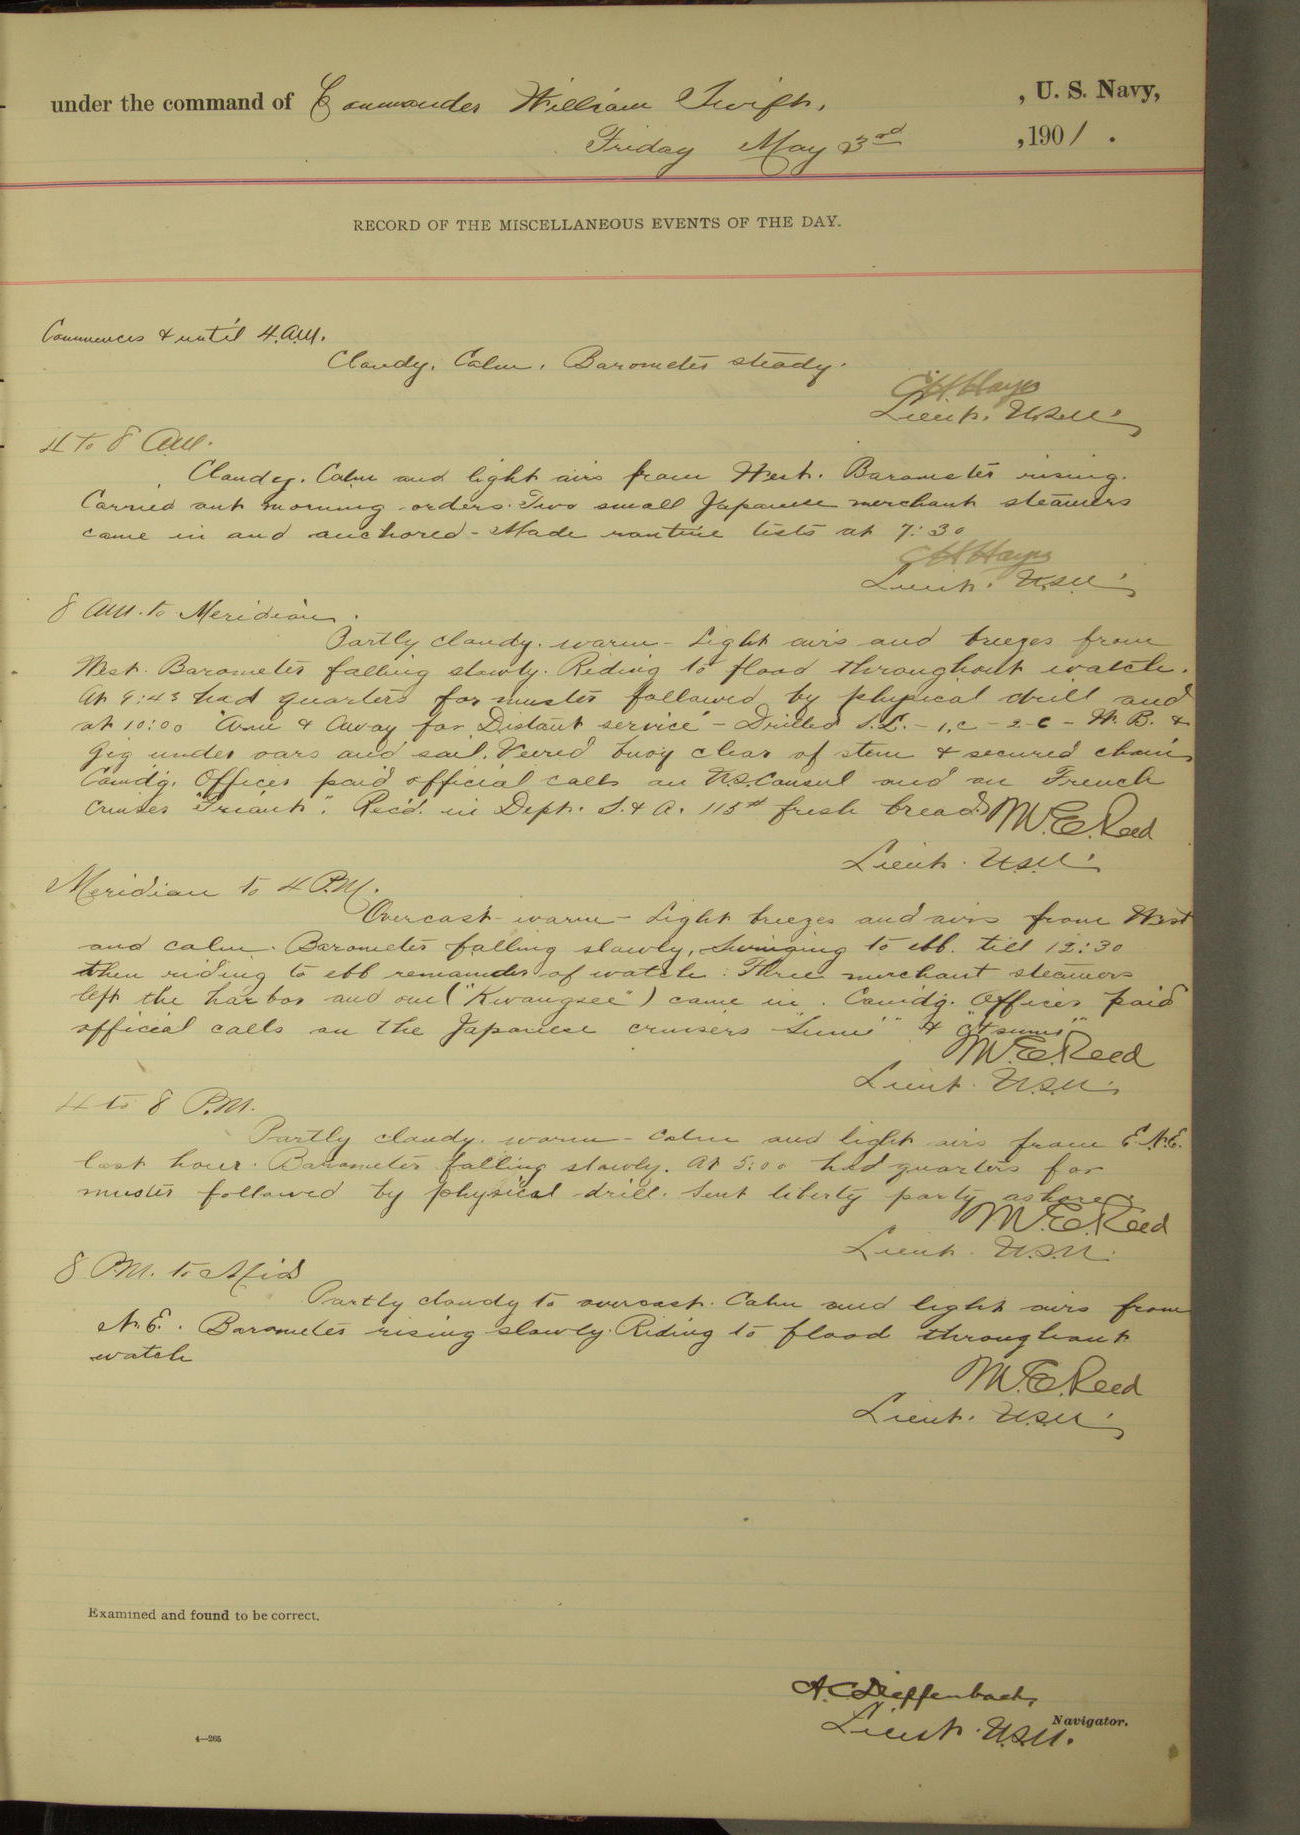 under the command of Commander William Swift, , U. S. Navy,
Friday May 3rd , 1901 .
RECORD OF THE MISCELLANEOUS EVENTS OF THE DAY.
Commences & until 4 A.M.
Cloudy. Calm. Barometer steady.
C H Hayes
Lieut. U.S.N.
4 to 8 A.M.
Cloudy. Calm and light airs from West. Barometer rising.
Carried out morning orders. Two small Japanese merchant steamers
came in and anchored - Made routine tests at 7:30
C H Hayes
Lieut. U.S.N.
8 A.M. to Meridian.
Partly cloudy. warm - Light airs and breezes from
West. Barometer falling slowly. Riding to flood throughout watch.
At 9:45 had quarters for muster followed by physical drill and
at 10:00 "Arm & Away for Distant service" - Drilled S.L. - 1.C - 2-C - W.B. &
Gig under oars and sail. Veered buoy clear of stem & secured chain
Comdg. Officer paid official calls on U.S. Consul and on French
Cruiser "Friant". Rec'd. in Dept. S. & A. 115# fresh bread.
M.E. Reed
Lieut. U.S.N.
Meridian to 4 P.M.
Overcast - warm - Light breezes and airs from West
and calm. Barometer falling slowly, Swinging to ebb. till 12:30
then riding to ebb remainder of watch. Three merchant steamers
left the harbor and one ("Kwangsee") came in. Comdg. Officer paid
official calls on the Japanese cruisers "Sumi" & "Atsumi"
M.E. Reed
Lieut. U.S.N.
4 to 8 P.M.
Partly cloudy. warm - Calm and light airs from E.N.E.
last hour. Barometer falling slowly. At 5:00 had quarters for
muster followed by physical drill. Sent liberty party ashore.
M.E. Reed
Lieut. U.S.N.
8 P.M. to Mid
Partly cloudy to overcast. Calm and light airs from
N.E. Barometer rising slowly. Riding to flood throughout
watch
M.E. Reed
Lieut. U.S.N.
Examined and found to be correct.
A.C. Dieffenbach,
Lieut. U.S.N.
Navigator.
4—265